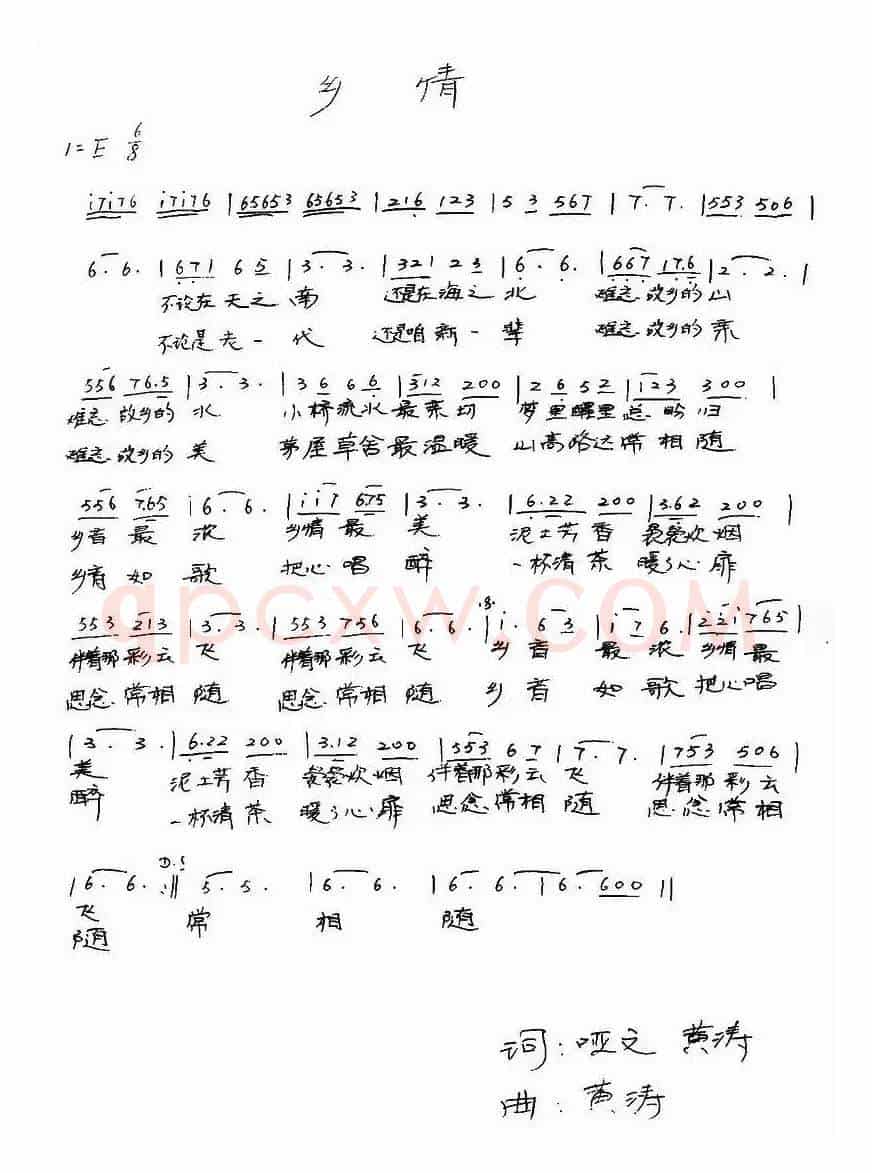 乡 情
1=E 6/8
i7i76 i7i76 | 65653 65653 | 216 123 | 5 3 567 | 7. 7. | 553 506 |
6. 6. | 671 6 5 | 3. 3. | 321 2 3 | 6. 6. | 667 17.6 | 2. 2. |
不论在天之南 还是在海之北 难忘故乡的山
不论是老一代 还是咱新一辈 难忘故乡的
556 76.5 | 3. 3. | 3 6 6 6 | 312 200 | 2 6 5 2 | 123 300 |
难忘故乡的水 小桥流水最亲切 梦里醒里总盼归
难忘故乡的美 茅屋草舍最温暖 山高路远常相随
556 7.65 | 6. 6. | i i 7 6.75 | 3. 3. | 6.22 200 | 3.62 200 |
乡音最浓 乡情最美 泥土芳香 袅袅炊烟
乡音如歌 把心唱醉 一杯清茶 暖々心扉
qpcxw.COM
553 213 | 3. 3. | 553 756 | 6. 6. | i. 6 3 | i 7 6. | 2 2 i 7 6 5 |
伴着那彩云飞 伴着那彩云飞 乡音最浓 乡情最
思念常相随 思念常相随 乡音如歌 把心唱
| 3. 3. | 6.22 200 | 3.12 200 | 553 6 7 | 7. 7. | 753 506 |
美 泥土芳香 袅袅炊烟 伴着那彩云飞 伴着那彩云
醉 一杯清茶 暖々心扉 思念常相随 思念常相
D.S
| 6. 6. :|| 5. 5. | 6. 6. | 6. 6. | 6. 600 ||
飞 常 相 随
随
词: 哑文 黄涛
曲: 黄涛